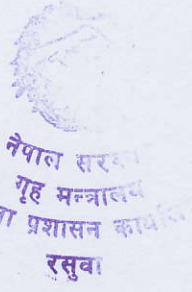 नेपाल सरकार
गृह मन्त्रालय
प्रशासन
रसुवा